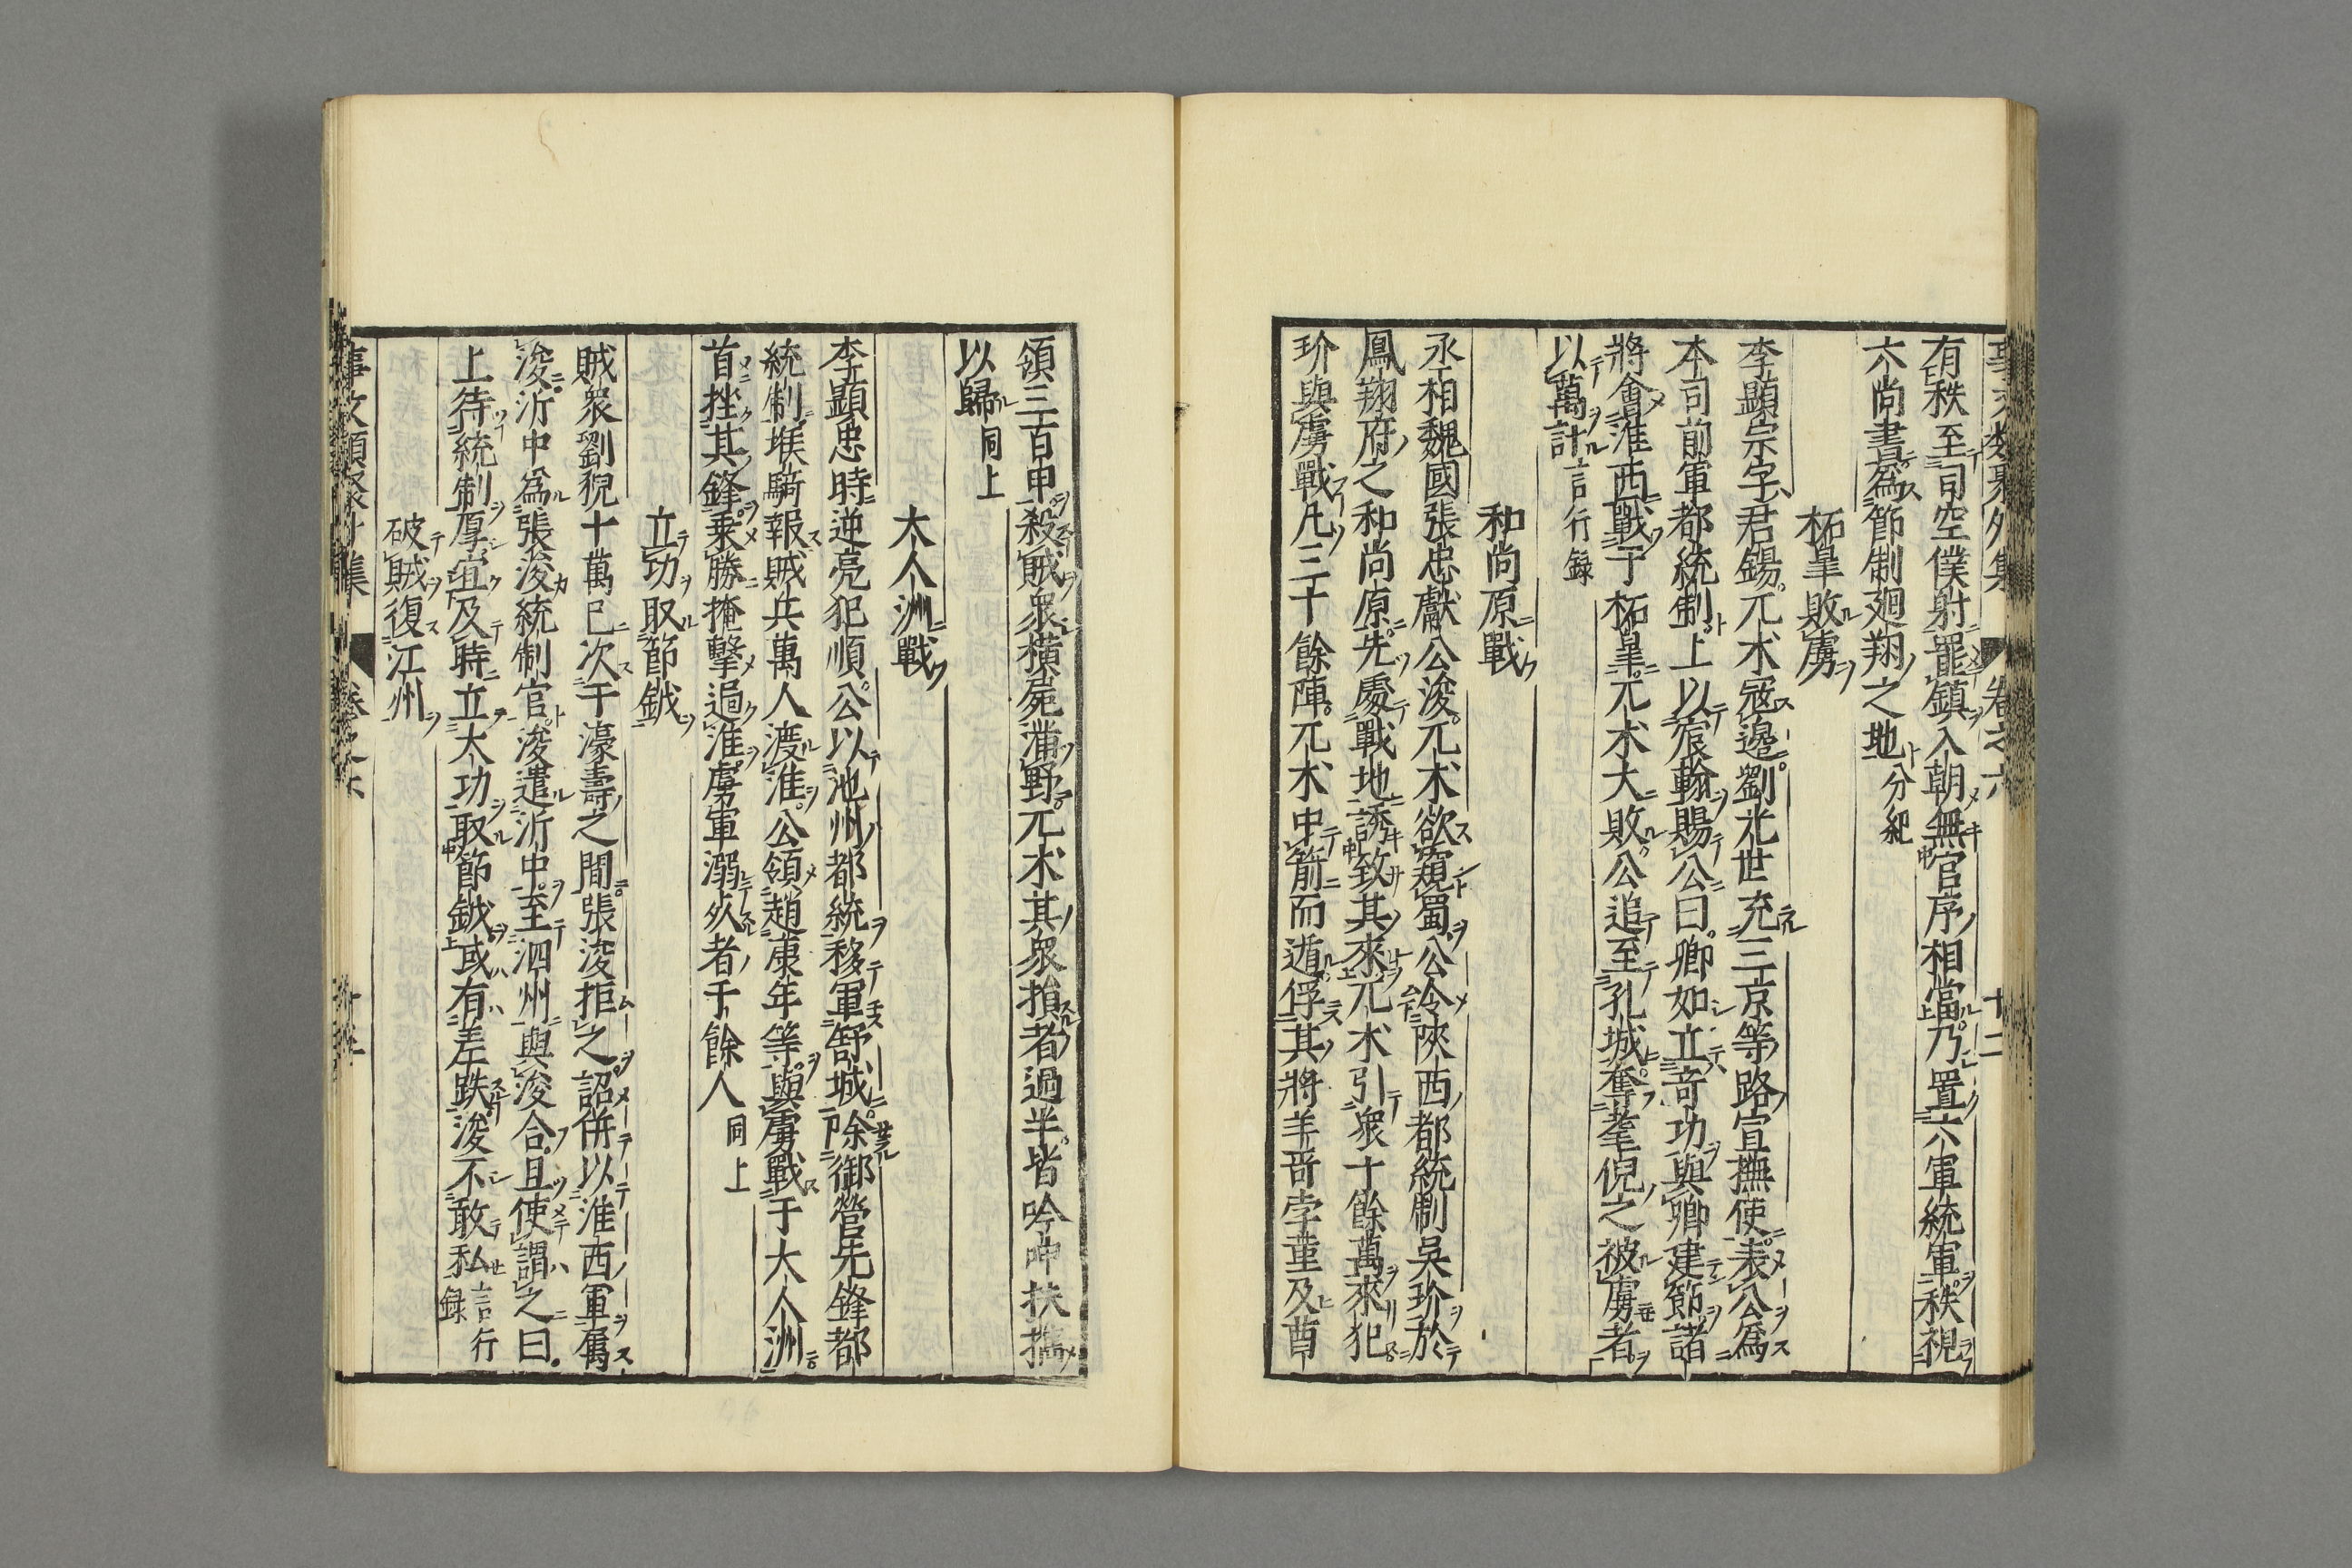 有秩至司空僕射罷鎮入朝無官序相當乃置六軍統軍秩視
六尚書爲節制廻翔之地分紀
柘皐敗虜
李顯宗字君錫兀朮寇邊劉光世充三京等路宣撫使表公爲
本司前軍都統制上以宸翰賜公曰卿如立奇功與卿建節諸
將會淮西戰于柘皐兀朮大敗公追至孔城奪耄倪之被虜者
以萬計言行録
和尚原戰
丞相魏國張忠獻公浚兀朮欲窺蜀公令陝西都統制吳玠於
鳳翔府之和尚原先處戰地誘致其來兀朮引衆十餘萬來犯
玠與虜戰凡三十餘陣兀朮中箭而遁俘其將羊哥孛堇及酋
領三百甲殺賊衆橫屍滿野兀朮其衆損者過半皆吟呻扶攜
以歸同上
大人洲戰
李顯忠時逆亮犯順公以池州都統移軍舒城除御營先鋒都
統制堠騎報賊兵萬人渡淮公領趙康年等與虜戰于大人洲
首挫其鋒乘勝掩擊過淮虜軍溺死者千餘人同上
立功取節鉞
賊衆劉猊十萬已次于濠壽之間張浚拒之詔併以淮西軍屬
浚沂中爲張浚統制官浚遣沂中至泗州與浚合且使謂之曰
上待統制厚宜及時立大功取節鉞或有差跌浚不敢私言行録
破賊復江州